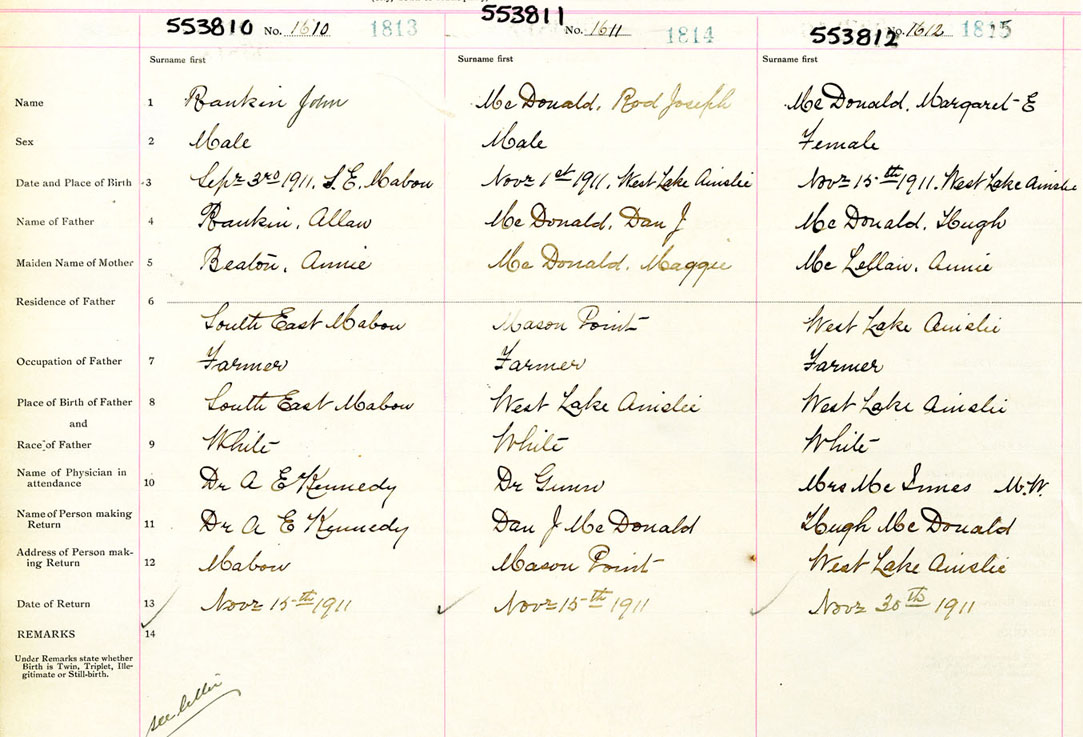 553810 No. 1610 1813 553811 No. 1611 1814 553812 No. 1612 1815
Surname first Surname first Surname first
Name 1 Rankin John Mc Donald, Rod Joseph Mc Donald, Margaret E
Sex 2 Male Male Female
Date and Place of Birth 3 Sepr 3rd 1911. S. E. Mabou Novr 1st 1911. West Lake Ainslie Novr 15th 1911. West Lake Ainslie
Name of Father 4 Rankin, Allan Mc Donald, Dan J Mc Donald, Hugh
Maiden Name of Mother 5 Beaton, Annie Mc Donald, Maggie Mc Lellan, Annie
Residence of Father 6
South East Mabou Mason Point West Lake Ainslie
Occupation of Father 7 Farmer Farmer Farmer
Place of Birth of Father 8 South East Mabou West Lake Ainslie West Lake Ainslie
and
Race of Father 9 White White White
Name of Physician in
attendance 10 Dr A E Kennedy Dr Gunn Mrs Mc Innes M.W.
Name of Person making
Return 11 Dr A E Kennedy Dan J Mc Donald Hugh Mc Donald
Address of Person mak-
ing Return 12 Mabou Mason Point West Lake Ainslie
Date of Return 13 Novr 15th 1911 Novr 15th 1911 Novr 30th 1911
REMARKS 14
Under Remarks state whether
Birth is Twin, Triplet, Ille-
gitimate or Still-birth.
see letter